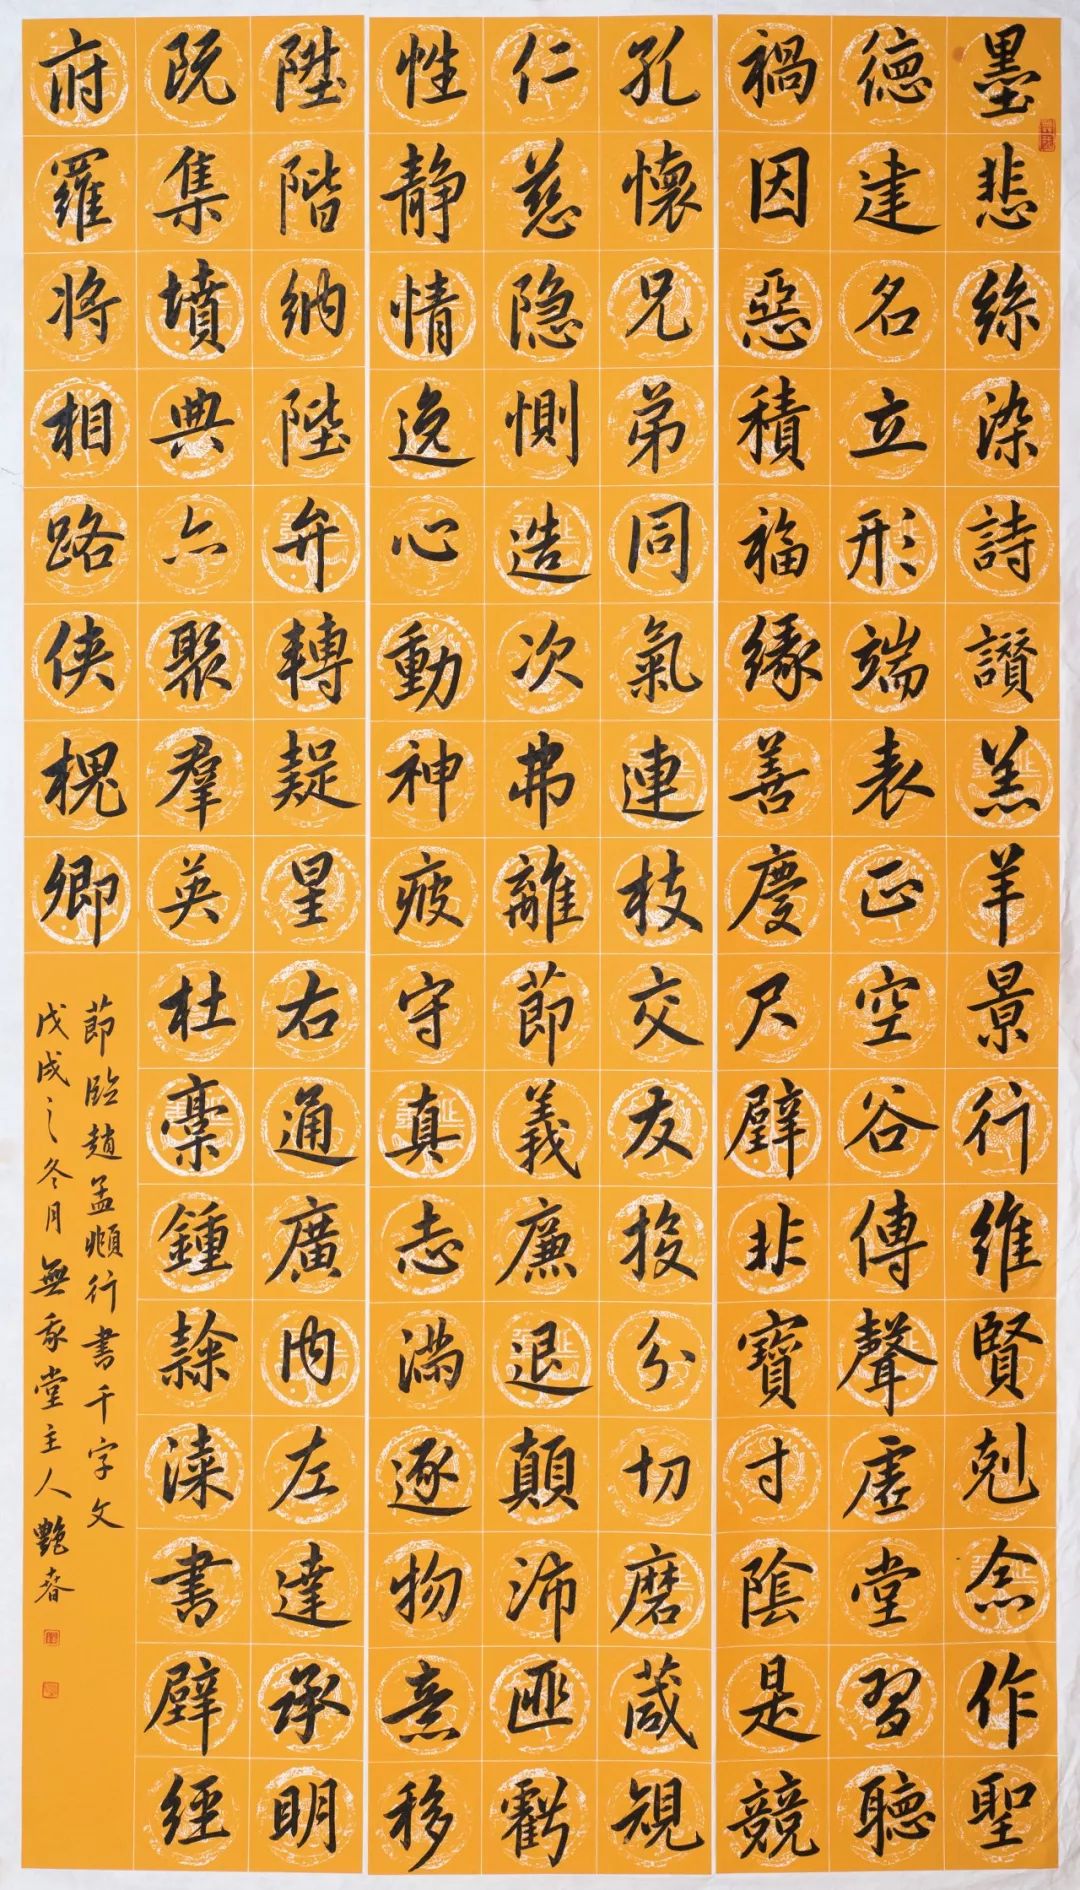 墨悲絲染詩讃羔羊景行維賢剋念作聖
德建名立形端表正空谷傳聲虛堂習聽
禍因惡積福緣善慶尺璧非寶寸陰是競
孔懷兄弟同氣連枝交友投分切磨箴規
仁慈隐惻造次弗離節義廉退顛沛匪虧
性静情逸心動神疲守真志滿逐物意移
陞階納陛弁轉疑星右通廣内左達承明
既集墳典亦聚羣英杜稾鍾隸漆書壁經
府羅将相路侠槐卿
節臨趙孟頫行書千字文
戊戌之冬月無我堂主人艷春